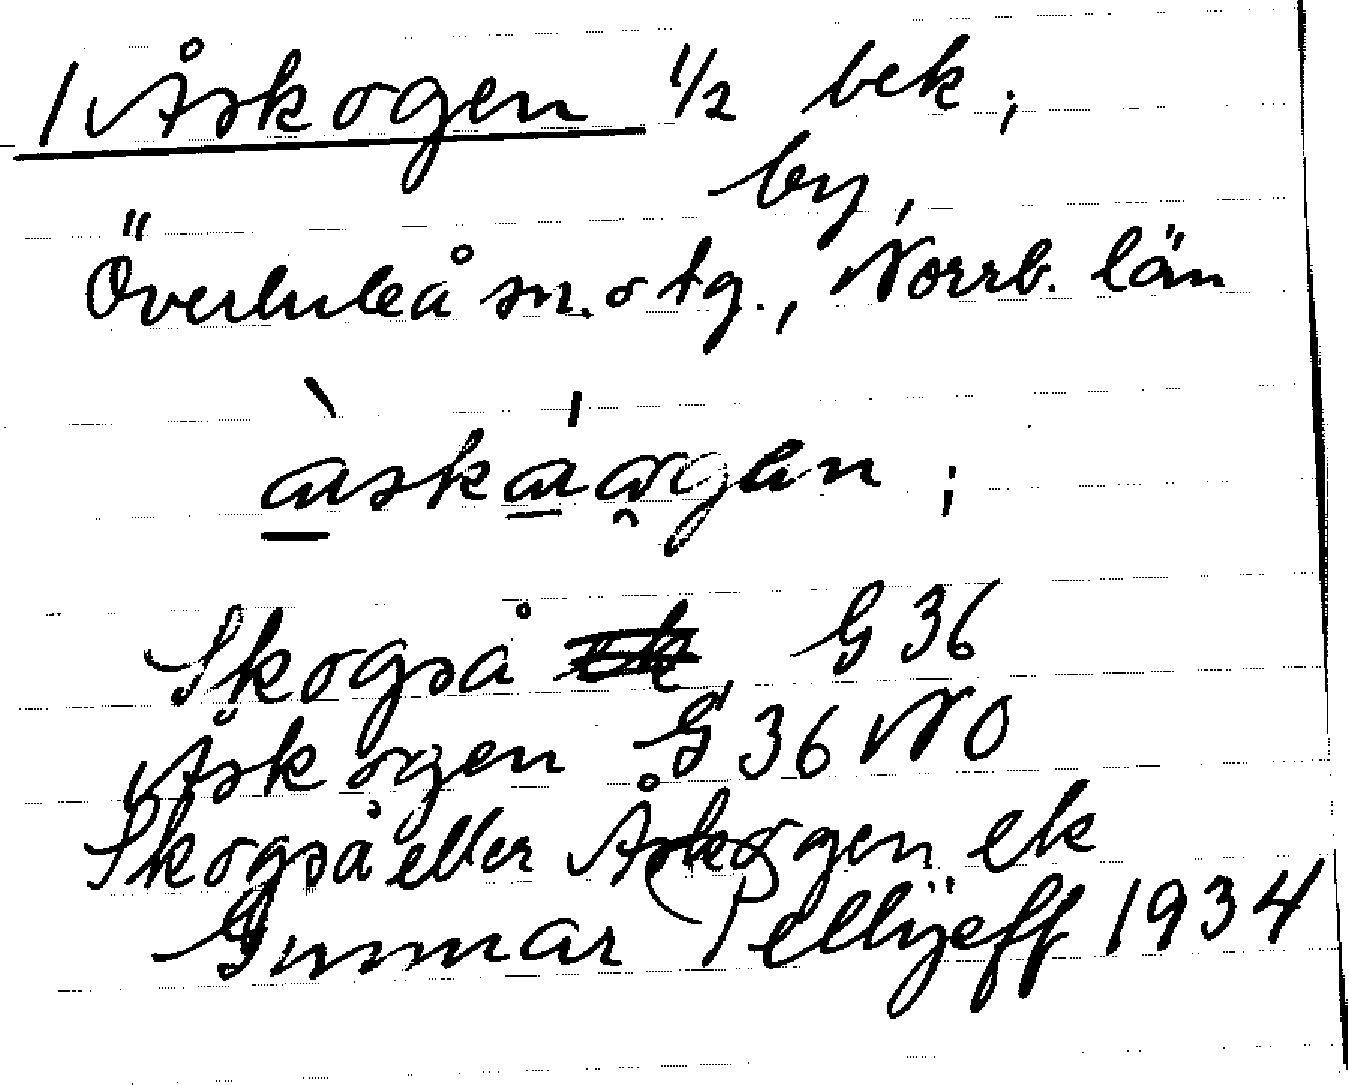 1 Åskogen 1/2 bek ;
by,
Överluleå sn. o tg., Norrb. län
àskáogen ;
Skogså G 36
Åskogen G 36 NO
Skogså eller Åskogen ek
Gunnar Pellijeff 1934